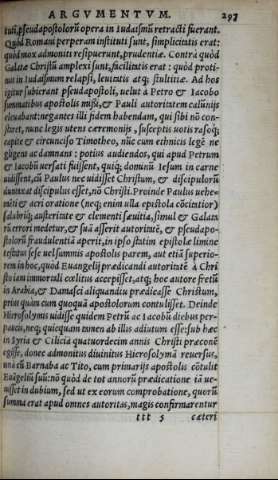 ARGVMENTVM. 293
tuti, pseudapostolorũ opera in Iudaismũ retracti fuerant.
Quòd Romani perperam instituti sunt, simplicitatis erat:
quòd mox admoniti resipuerunt, prudentiæ. Contrà quòd
Galatæ Christũ amplexi sunt, facilitatis erat: quòd protinus
in Iudaismum relapsi, leuitatis atq; stultitiæ. Ad hos
igitur subierant pseudapostoli, uelut à Petro & Iacobo
summatibus apostolis missi, & Pauli autoritatem calũnijs
eleuabant: negantes illi fidem habendam, qui sibi nõ constaret,
nunc legis utens cæremonijs, susceptis uotis rasoq;
capite & circunciso Timotheo, nũc eum ethnicis legẽ negligens
ac damnans: potius audiendos, qui apud Petrum
& Iacobũ uersati fuissent, quiq; dominũ Iesum in carne
uidissent, cũ Paulus nec uidisset Christum, & discipulorũ
duntaxat discipulus esset, nõ Christi. Proinde Paulus uehemẽti
& acri oratione (neq; enim ulla epistola cõcintior)
salubriq; austeritate & clementi sæuitia, simul & Galatarũ
errori medetur, & suã asserit autoritatẽ, & pseudapostolorũ
fraudulentiã aperit, in ipso statim epistolæ limine
testatus sese uel summis apostolis parem, aut etiã superiorem
in hoc, quod Euangelij prædicandi autoritatẽ à Christo
iam immortali cœlitus accepisset, atq; hoc autore fretũ
in Arabia, & Damasci aliquandiu prædicasse Christum,
prius quàm cum quoquã apostolorum contulisset. Deinde
Hierosolymis uidisse quidem Petrũ ac Iacobũ diebus perpaucis,
neq; quicquam tamen ab illis adiutum esse: sub hæc
in Syria & Cilicia quatuordecim annis Christi præconẽ
egisse, donec admonitus diuinitus Hierosolymã reuersus,
unà cũ Barnaba ac Tito, cum primarijs apostolis cõtulit
Euãgeliũ suũ: nõ quòd de tot annorũ prædicatione iã uenisset
in dubium, sed ut ex eorum comprobatione, quorũ
summa erat apud omnes autoritas, magis confirmarentur
ttt 5 cæteri